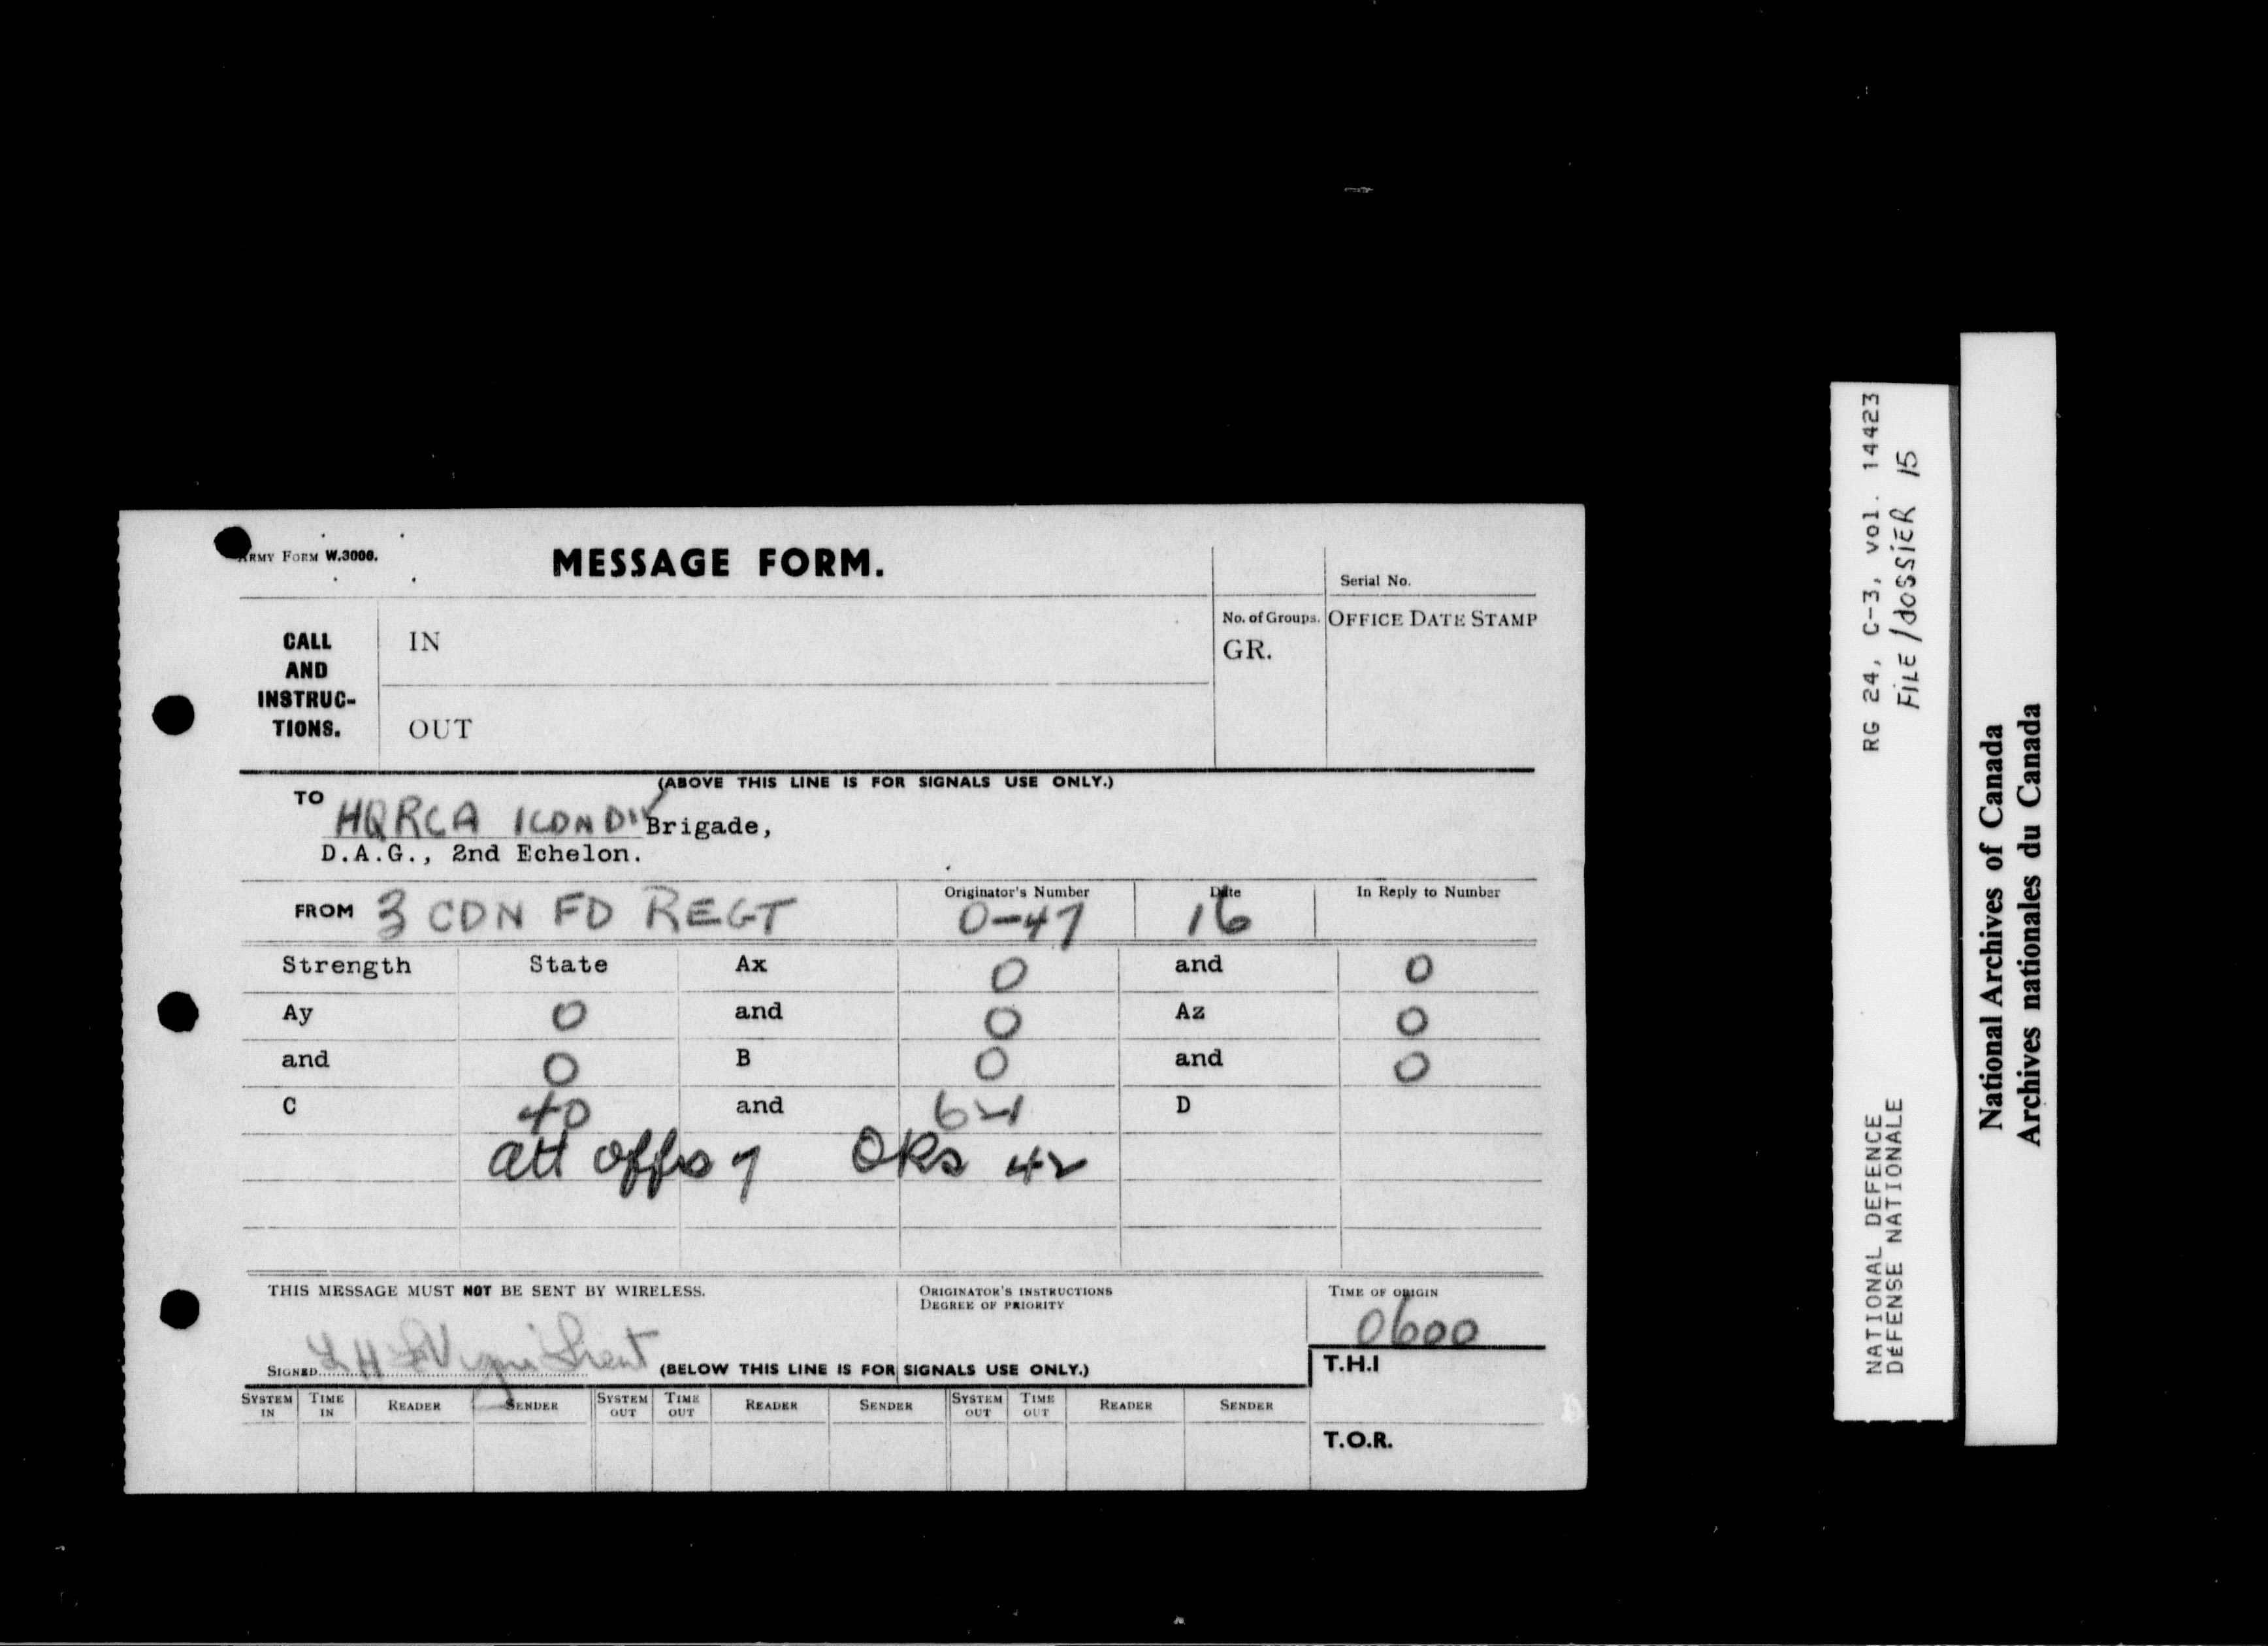 ARMY FORM W.3000.
MESSAGE FORM.
Serial No.
CALL AND INSTRUC- TIONS.
IN
No. of Groups.
GR.
OFFICE DATE STAMP
OUT
(ABOVE THIS LINE IS FOR SIGNALS USE ONLY.)
TO
HQRCA 1 CDN DIV Brigade,
D.A.G., 2nd Echelon.
FROM 3 CDN FD REGT
Originator's Number
0-47
Date
16
In Reply to Number
Strength State Ax 0 and 0
Ay 0 and 0 Az 0
and 0 B 0 and 0
C 40 and D
att offrs 7 ORs 42
THIS MESSAGE MUST NOT BE SENT BY WIRELESS.
ORIGINATOR'S INSTRUCTIONS
DEGREE OF PRIORITY
TIME OF ORIGIN
0600
SIGNED
(BELOW THIS LINE IS FOR SIGNALS USE ONLY.)
T.H.I
SYSTEM IN TIME IN READER SENDER SYSTEM OUT TIME OUT READER SENDER SYSTEM OUT TIME OUT READER SENDER
T.O.R.
NATIONAL DEFENCE RG 24, C-3, vol. 14423
DÉFENSE NATIONALE FILE/dOSSIER 15
National Archives of Canada
Archives nationales du Canada